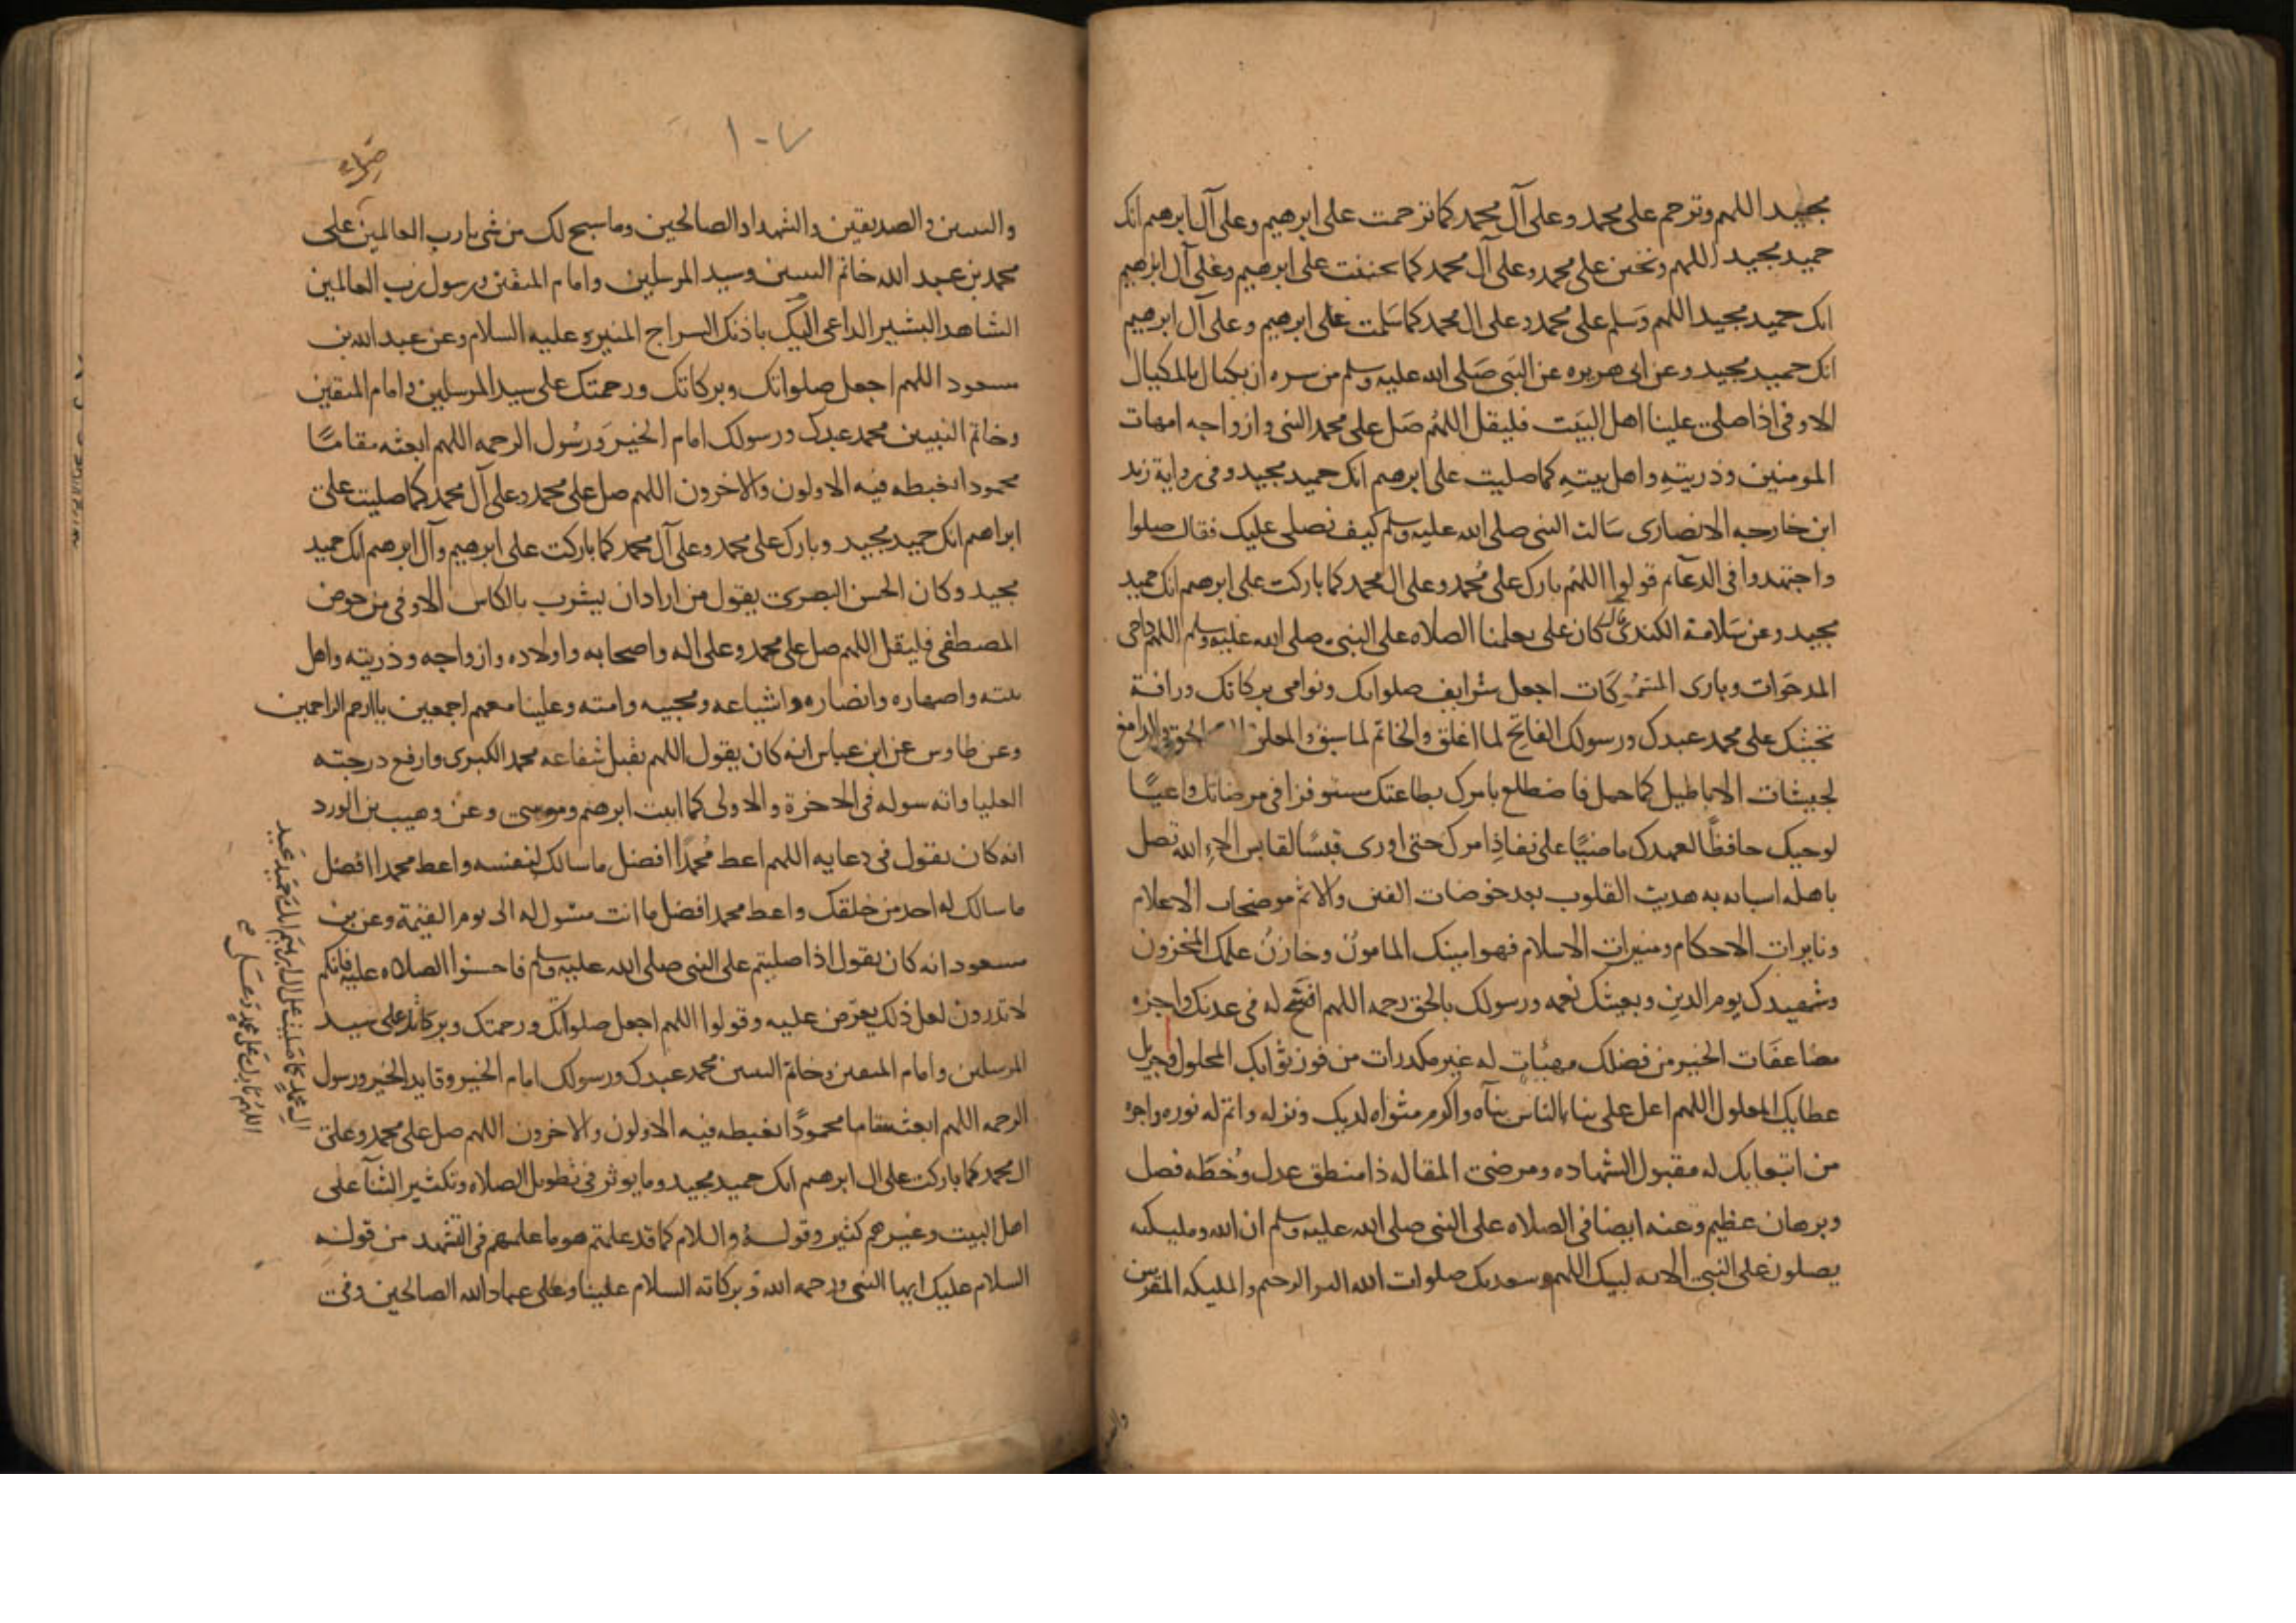 مجيد اللهم وترحم على محمد وعلى آل محمد كما ترحمت على ابرهيم وعلى آل ابرهيم انك
حميد مجيد اللهم وتحنن على محمد وعلى آل محمد كما تحننت على ابرهيم وعلى آل ابرهيم
انك حميد مجيد اللهم وسلم على محمد وعلى ال محمد كما سلمت على ابرهيم وعلى آل ابرهيم
انك حميد مجيد وعن ابى هريره عن النبى صلى الله عليه وسلم من سره ان يكتال بالمكيال
الاوفى اذا صلى علينا اهل البيت فليقل اللهم صل على محمد النبى وازواجه امهات
المومنين وذريته واهل بيته كما صليت على ابرهيم انك حميد مجيد وفى رواية زيد
ابن خارجه الانصارى سالت النبى صلى الله عليه وسلم كيف نصلى عليك فقال صلوا
واجتهدوا فى الدعا ثم قولوا اللهم بارك على محمد وعلى ال محمد كما باركت على ابرهيم انك حميد
مجيد وعن سلامة الكندى كان على يعلمنا الصلاه على النبى صلى الله عليه وسلم اللهم داحى
المدحوات وبارى المسموكات اجعل شرايف صلواتك ونوامى بركاتك ورافة
تحننك على محمد عبدك ورسولك الفاتح لما اغلق والخاتم لما سبق والمعلن الحق والدامغ
لجيشات الاباطيل كما حمل فاضطلع بامرك بطاعتك مستوفزا فى مرضاتك واعيًا
لوحيك حافظًا لعهدك ماضيًا على نفاذ امرك حتى اورى قبسًا لقابس الاء الله تصل
باهله اسبابه به هديت القلوب بعد خوضات الفتن والاثم موضحات الاعلام
ونايرات الاحكام ومنيرات الاسلام فهو امينك المامون وخازن علمك المخزون
وشهيدك يوم الدين وبعيثك نعمه ورسولك بالحق رحمه اللهم افتح له فى عدنك واجزه
مضاعفات الخير من فضلك مهنئات له غير مكدرات من فوز ثوابك المحلول وجزيل
عطايك المعلول اللهم اعل على بناء الناس بناه واكرم مثواه لديك ونزله واتم له نوره واجزه
من ابتعاثك له مقبول الشهاده ومرضى المقاله ذا منطق عدل وخطه فصل
وبرهان عظيم وعنه ايضا فى الصلاه على النبى صلى الله عليه وسلم ان الله ومليكته
يصلون على النبى الايه لبيك اللهم وسعديك صلوات الله البر الرحيم والمليكه المقربين
والنبيين والصديقين والشهدا والصالحين وما سبح لك من شى يارب العالمين على
محمد بن عبد الله خاتم النبيين وسيد المرسلين وامام المتقين ورسول رب العالمين
الشاهد البشير الداعى اليك باذنك السراج المنير وعليه السلام وعن عبد الله بن
مسعود اللهم اجعل صلواتك وبركاتك ورحمتك على سيد المرسلين وامام المتقين
وخاتم النبيين محمد عبدك ورسولك امام الخير ورسول الرحمه اللهم ابعثه مقامًا
محمودا يغبطه فيه الاولون والاخرون اللهم صل على محمد وعلى آل محمد كما صليت على
ابراهيم انك حميد مجيد وبارك على محمد وعلى آل محمد كما باركت على ابرهيم وآل ابرهيم انك حميد
مجيد وكان الحسن البصرى يقول من اراد ان يشرب بالكاس الاوفى من حوض
المصطفى فليقل اللهم صل على محمد وعلى اله واصحابه واولاده وازواجه وذريته واهل
بيته واصهاره وانصاره واشياعه ومحبيه وامته وعلينا معهم اجمعين ياارحم الراحمين
وعن طاوس عن ابن عباس انه كان يقول اللهم تقبل شفاعه محمد الكبرى وارفع درجته
العليا واته سوله فى الاخرة والاولى كما اتيت ابرهيم وموسى وعن وهيب بن الورد
انه كان يقول فى دعايه اللهم اعط محمدًا افضل ما سالك لنفسه واعط محمدا افضل
ما سالك له احد من خلقك واعط محمدا افضل ما انت مسول له الى يوم القيمة وعن بن
مسعود انه كان يقول اذا صليتم على النبى صلى الله عليه وسلم فاحسنوا الصلاه عليه فانكم
لا تدرون لعل ذلك يعرض عليه وقولوا اللهم اجعل صلواتك ورحمتك وبركاتك على سيد
المرسلين وامام المتقين وخاتم النبيين محمد عبدك ورسولك امام الخير وقايد الخير ورسول
الرحمه اللهم ابعثه مقاما محمودًا يغبطه فيه الاولون والاخرون اللهم صل على محمد وعلى
ال محمد كما باركت على ال ابرهيم انك حميد مجيد وما يوثر فى تطويل الصلاه وتكثير الثنآ على
اهل البيت وغيرهم كثير وقوله والسلام كما قد علمتم هو ما علمهم فى التشهد من قوله
السلام عليك ايها النبى ورحمه الله وبركاته السلام علينا وعلى عباد الله الصالحين وفى
ال محمد كما صليت على ال ابرهيم انك حميد مجيد
اللهم بارك على محمد وعلى